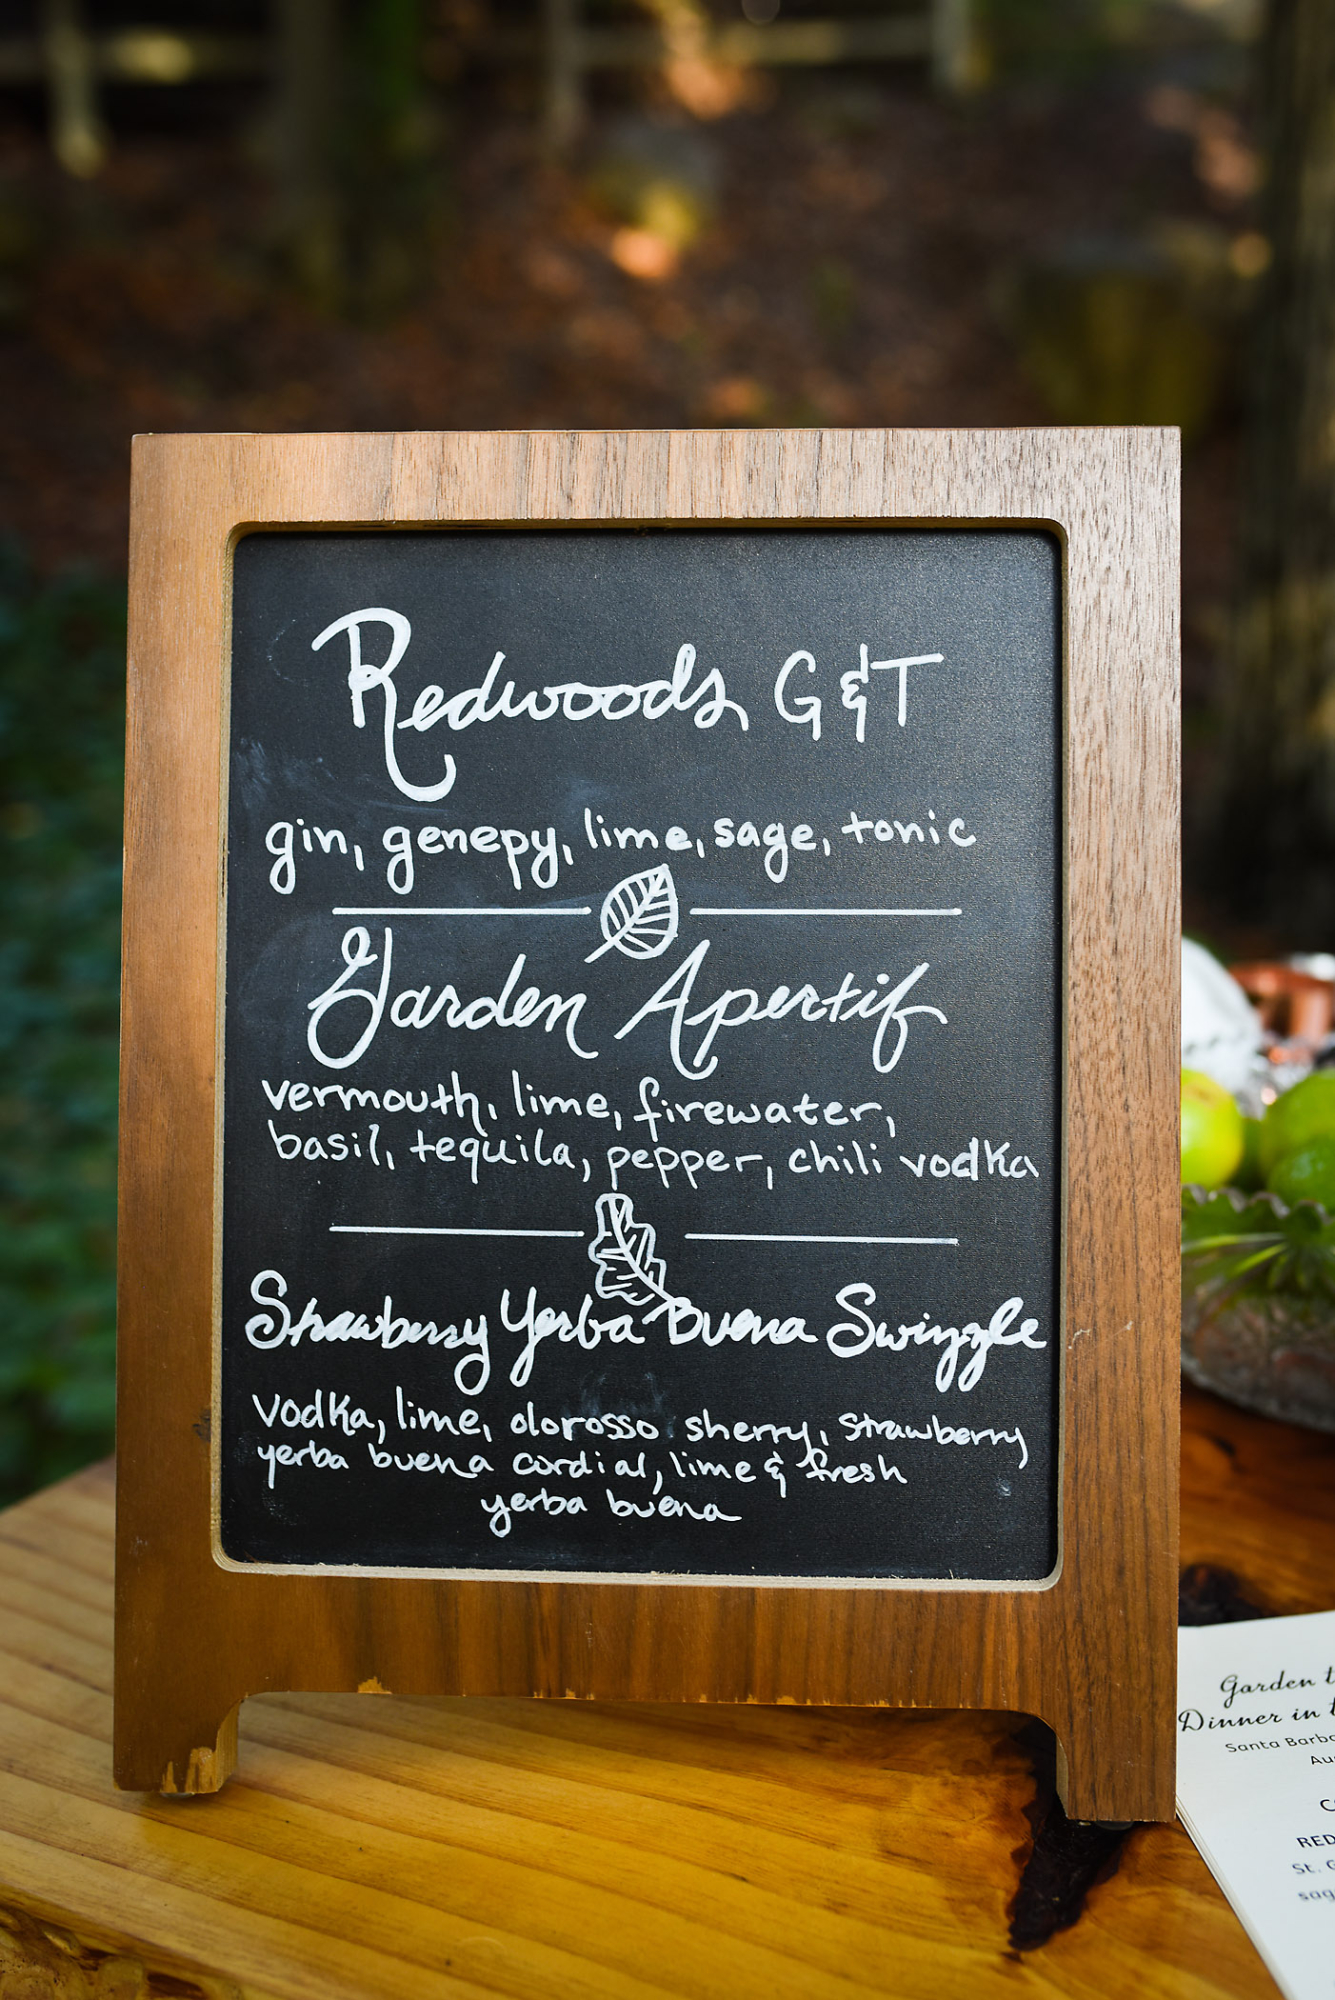 Redwoods G&T
gin, genepy, lime, sage, tonic
Garden Apertif
vermouth, lime, firewater,
basil, tequila, pepper, chili vodka
Strawberry Yerba Buena Swizzle
vodka, lime, olorosso sherry, strawberry
yerba buena cordial, lime & fresh
yerba buena
Garden
Dinner in
Santa Barba
Au
RED
St. G
sag